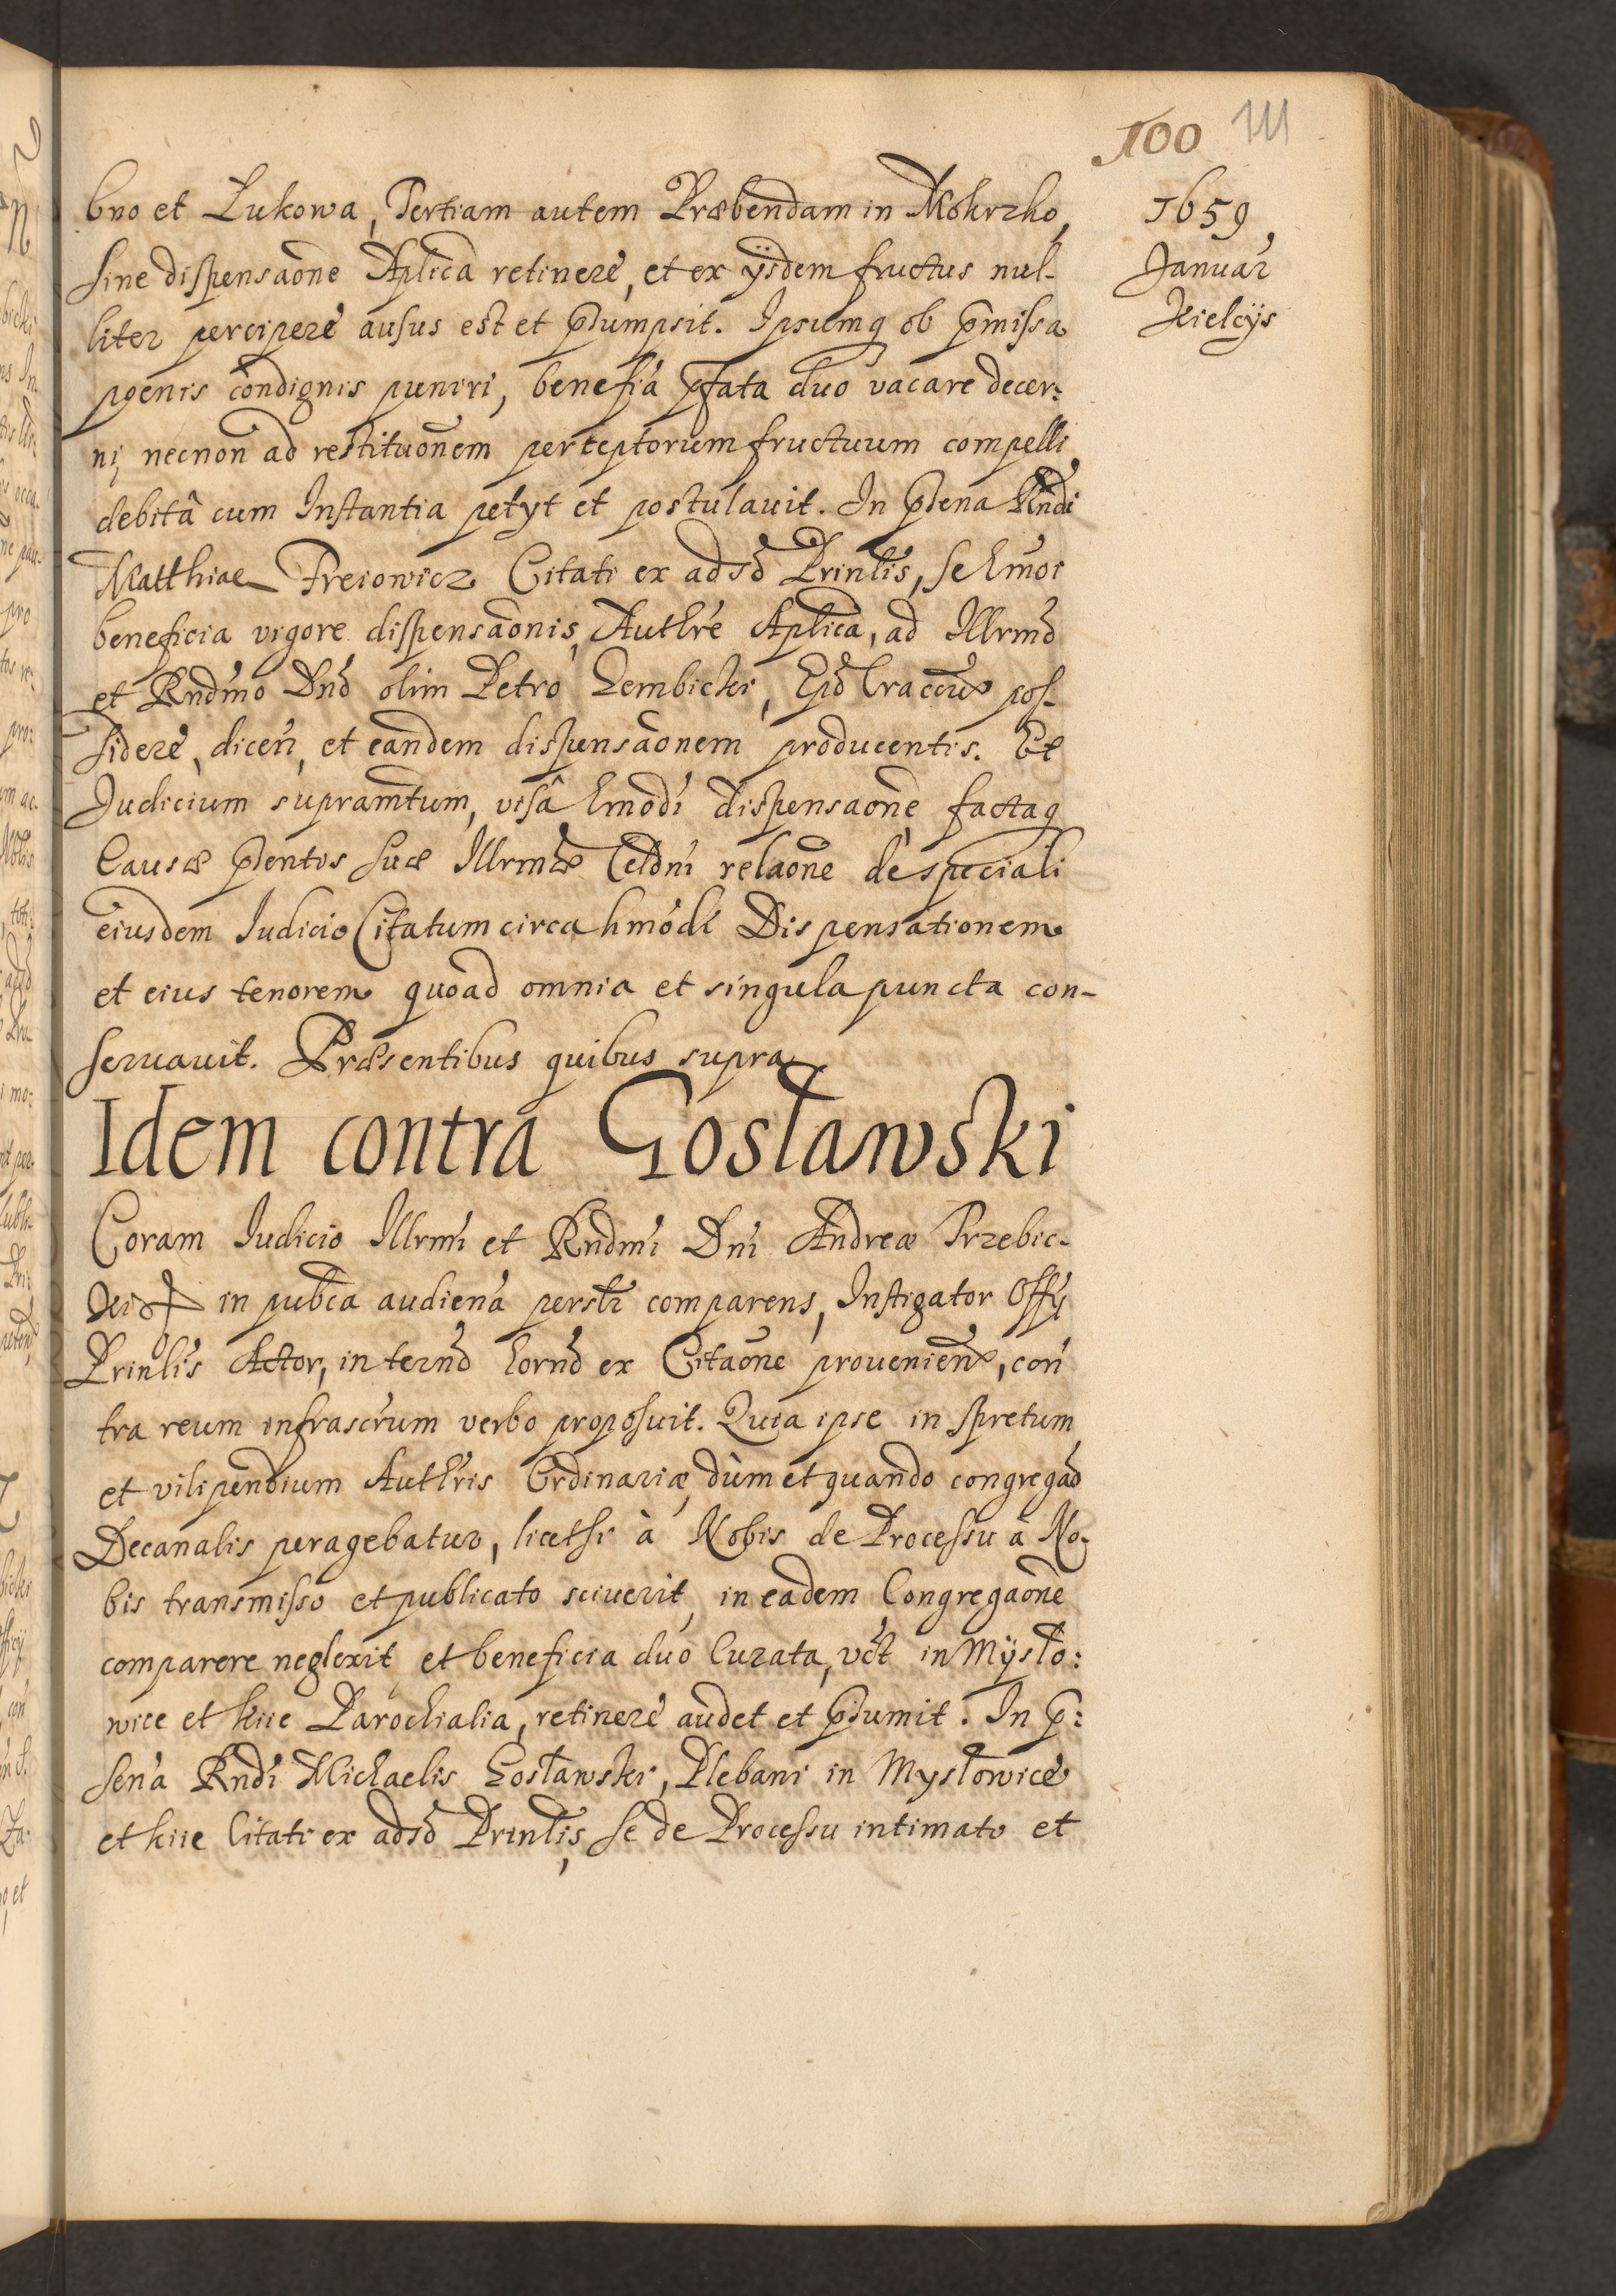 100 111
1659
Januar
Kielcÿs
bno et Lukowa, Tertiam autem Præbendam in Mokrzko,
sine dispensaõne Aplicã retinere, et ex ÿsdem fructus nul-
liter percipere ausus est et p̃sumpsit. Ipsumq ob p̃missa
poenis condignis puniri, benefia p̃fata duo vacare decer:
ni, necnon ad restituõnem perceptorum fructuum compelli
debitâ cum Instantia petyt et postulauit. In p̃sena Rndi
Matthiae Freiowicz Citati ex adso Prinlis, se hmoi
beneficia vigore dispensaõnis, Authre Aplica, ad Illrmo
et Rndmo Dno olim Petro Gembicki, Epo Craccu pos-
sidere, dicen, et eandem dispensaõnem producentis. Et
Judicium supramtum, visâ hmodi dispensaõne factaq
Causæ p̃sentis suæ Illrmæ Celdni relaõne de speciali
eiusdem Iudicio Citatum circa hmodi Dispensationem
et eius tenorem quoad omnia et singula puncta con-
seruauit. Præsentibus quibus supra
Idem contra Gosławski
Coram Iudicio Illrmi et Rndmi Dni Andreæ Trzebic-
ki in pubca audiena persłr comparens, Instigator Offÿ
Prinlis Actor, in termo horno ex Citaõne prouenien, con
tra reum infrascrum verbo proposuit. Quia ipse in spretum
et vilipendium Authris Ordinariæ, dum et quando congregao
Decanalis peragebatur, licet si à Nobis de Processu a No-
bis transmisso et publicato sciuerit, in eadem Congregaõne
comparere neglexit et beneficia duo Curata, vct in Mÿsło:
wice et kiie Parochialia, retinere audet et p̃sumit. In p̃:
sena Rndi Michaelis Gosławski, Plebani in Mysłowice
et kiie Citati ex adso Prinlis, se de Processu intimato et